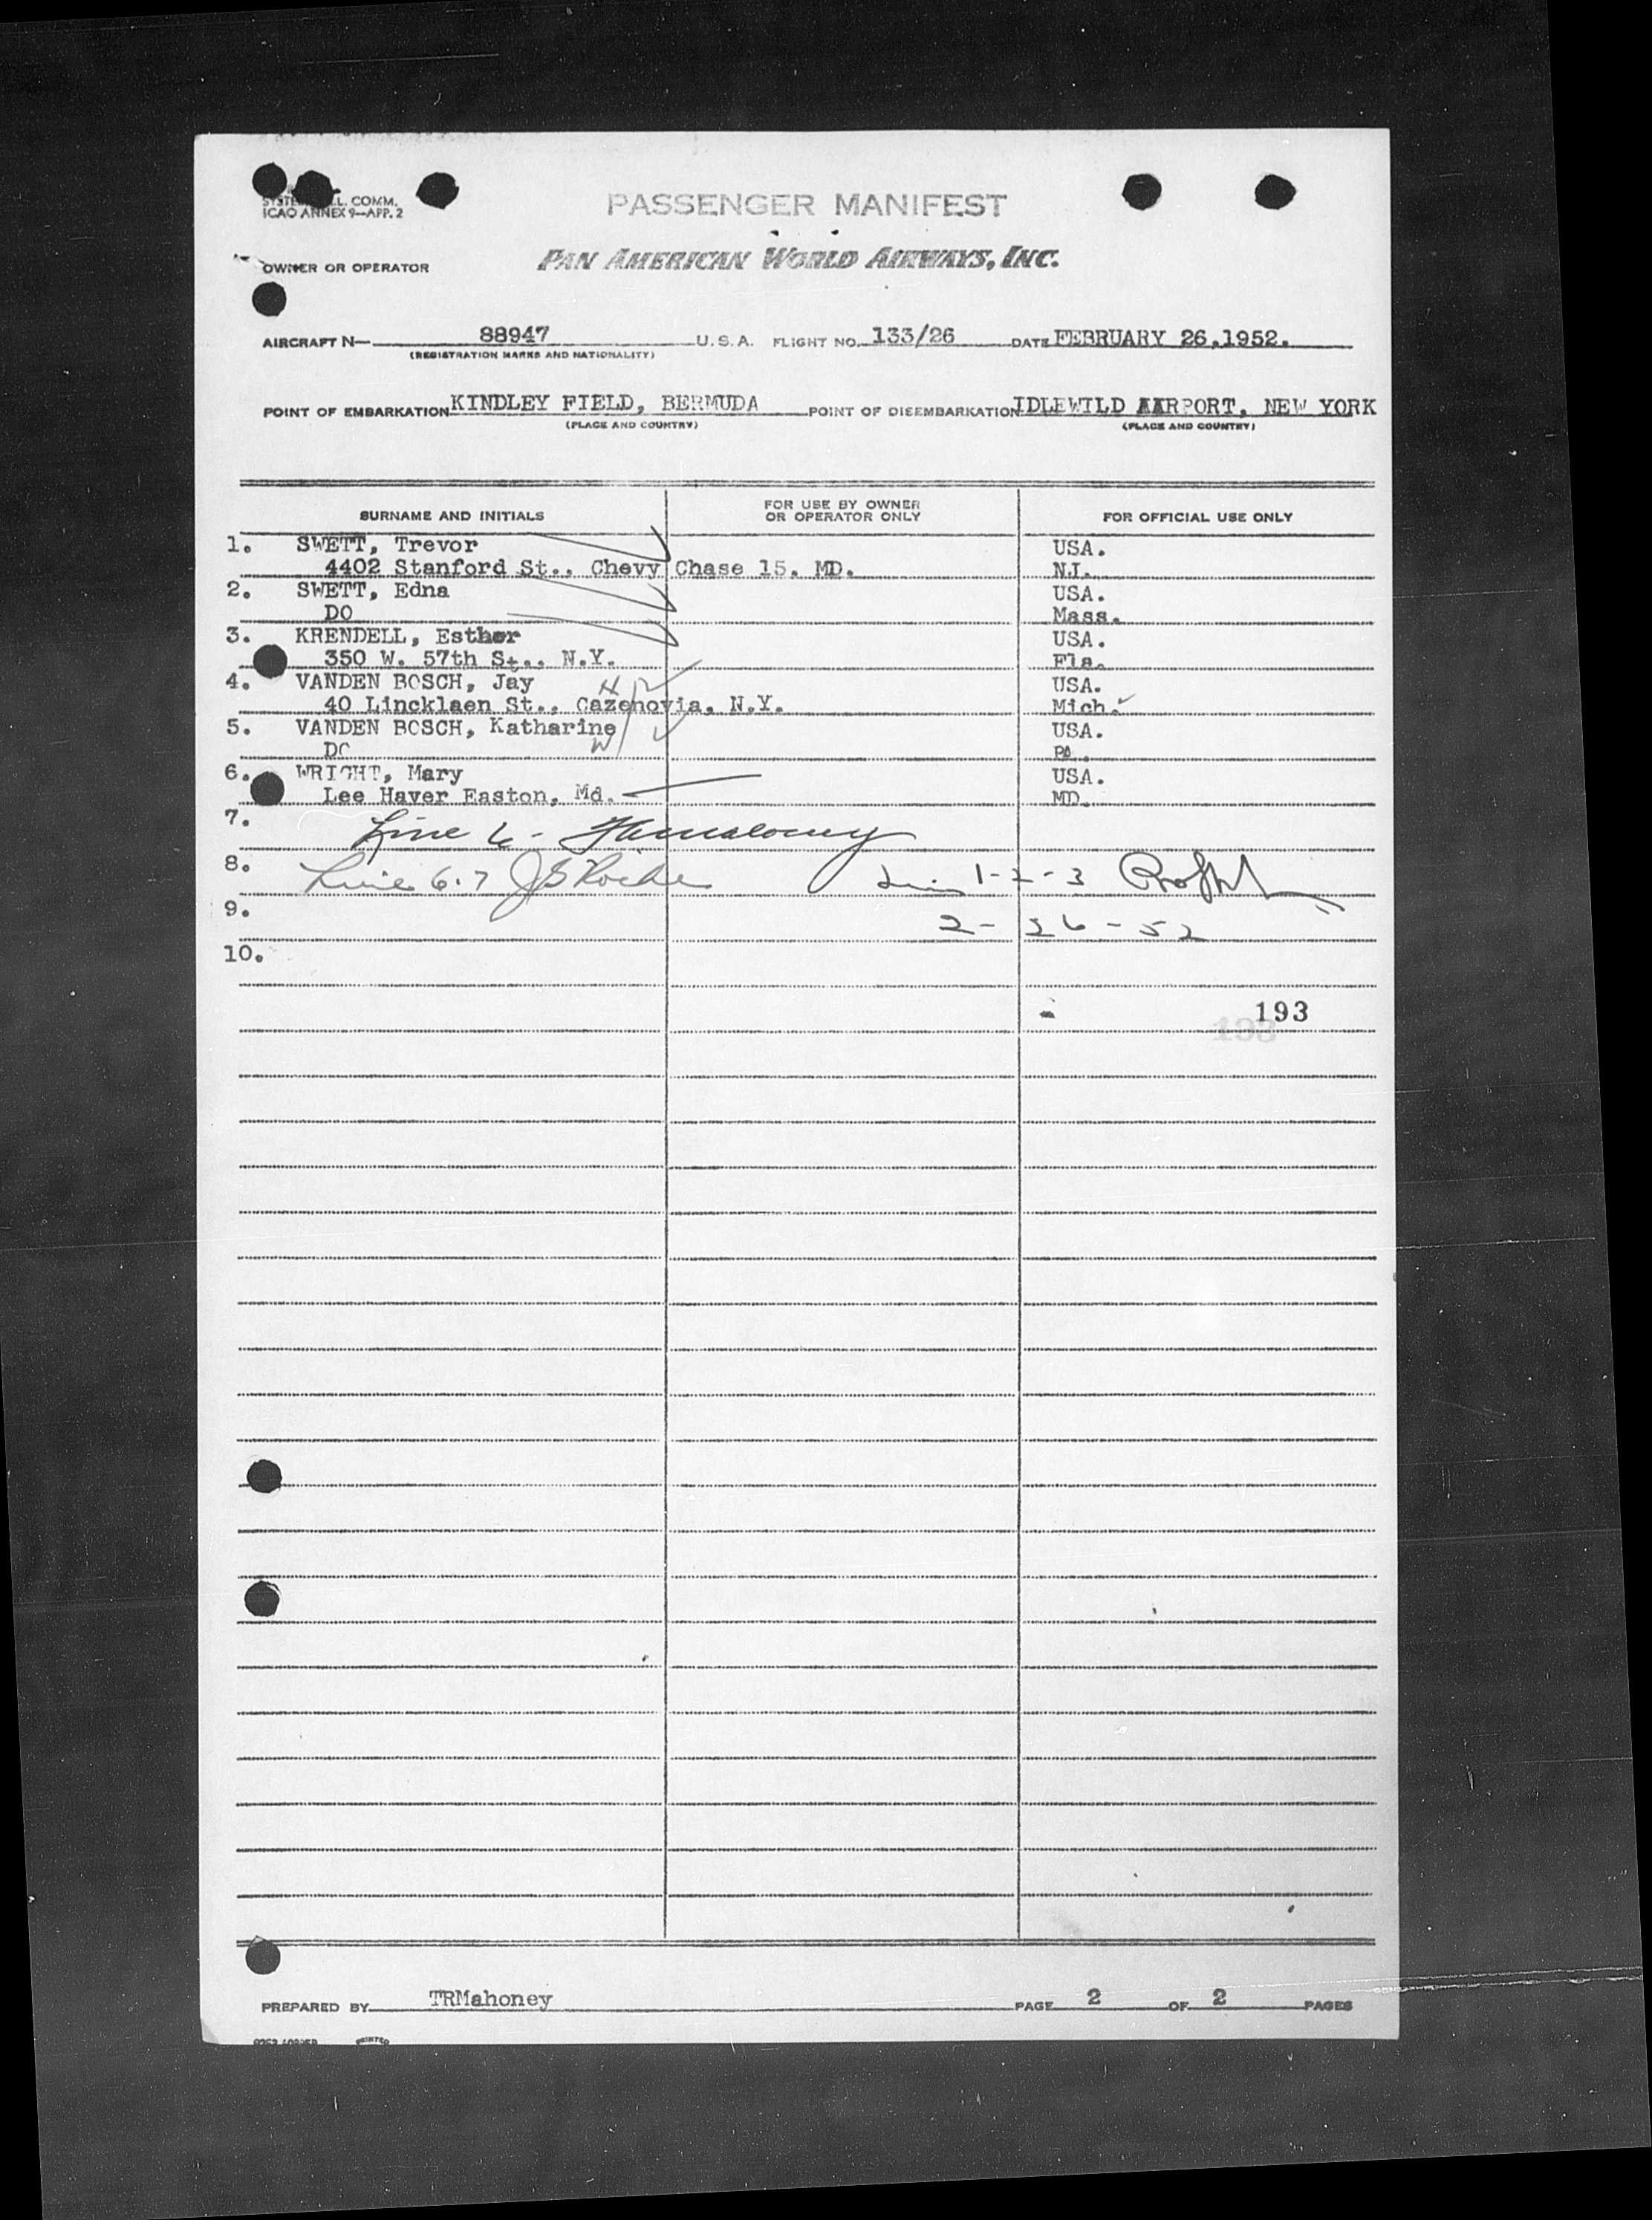 L. COMM.
ICAO ANNEX 9—APP. 2
PASSENGER MANIFEST
OWNER OR OPERATOR
PAN AMERICAN WORLD AIRWAYS, INC.
AIRCRAFT N— 88947 U.S.A. FLIGHT NO. 133/26 DATE FEBRUARY 26,1952.
(REGISTRATION MARKS AND NATIONALITY)
POINT OF EMBARKATION KINDLEY FIELD, BERMUDA POINT OF DISEMBARKATION IDLEWILD AIRPORT, NEW YORK
(PLACE AND COUNTRY) (PLACE AND COUNTRY)
SURNAME AND INITIALS FOR USE BY OWNER OR OPERATOR ONLY FOR OFFICIAL USE ONLY
1. SWETT, Trevor USA.
4402 Stanford St., Chevy Chase 15, MD. NJ.
2. SWETT, Edna USA.
DO Mass.
3. KRENDELL, Esther USA.
350 W. 57th St., N.Y. Fla.
4. VANDEN BOSCH, Jay H USA.
40 Lincklaen St., Cazenovia, N.Y. Mich.
5. VANDEN BOSCH, Katharine USA.
DO W PA.
6. WRIGHT, Mary USA.
Lee Haver Easton, Md. MD.
7. Line 6 -
8. Line 6.7 1-2-3
9. 2-26-52
10.
193
193
PREPARED BY TRMahoney PAGE 2 OF 2 PAGES
PRINTED